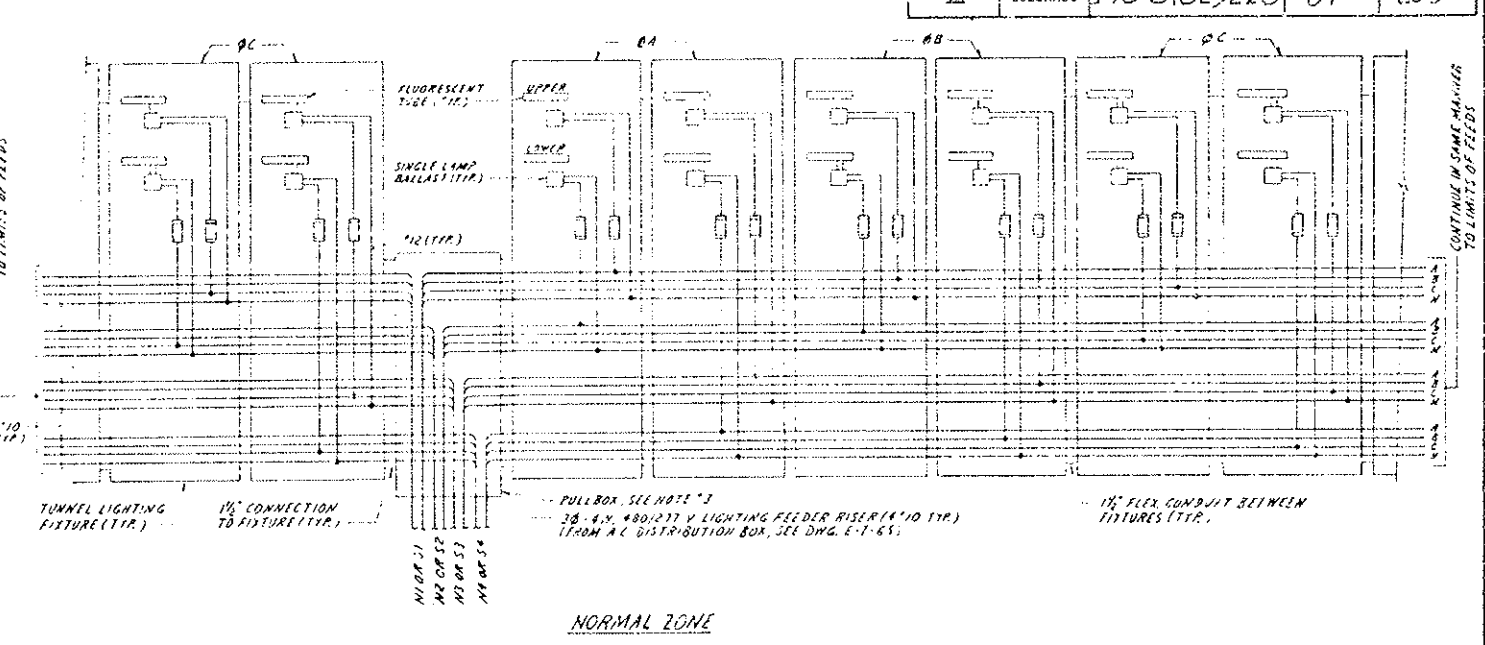 ØC
ØA
ØB
ØC
FLUORESCENT
TUBE (TYP.)
UPPER
LOWER
SINGLE LAMP
BALLAST (TYP.)
#12 (TYP.)
CONTINUE IN SAME MANNER
TO LIMITS OF FEEDS
TO LIMITS OF FEEDS
#10
(TYP.)
TUNNEL LIGHTING
FIXTURE (TYP.)
1½" CONNECTION
TO FIXTURE (TYP.)
PULLBOX, SEE NOTE #3
3Ø-4W, 480/277 V LIGHTING FEEDER RISER (4#10 TYP.)
(FROM AC DISTRIBUTION BOX, SEE DWG. E-T-65)
1½" FLEX. CONDUIT BETWEEN
FIXTURES (TYP.)
N1 OR S1
N2 OR S2
N3 OR S3
N4 OR S4
NORMAL ZONE